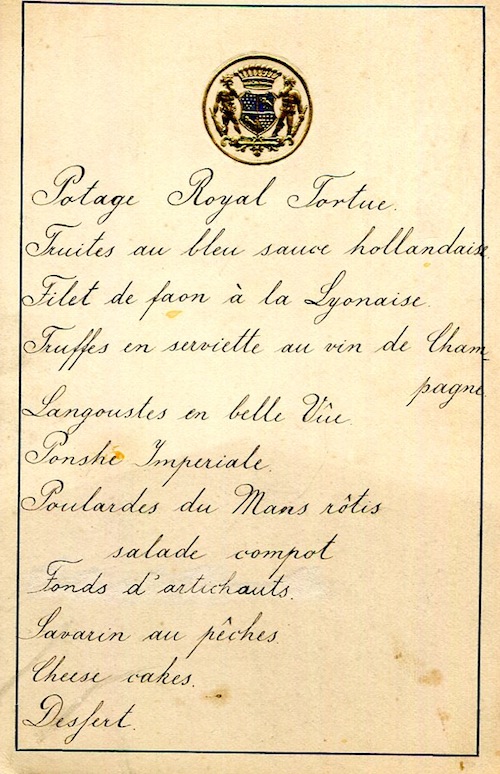 Potage Royal Tortue.
Truites au bleu sauce hollandaise
Filet de faon à la Lyonaise.
Truffes en serviette au vin de Cham-
pagne.
Langoustes en belle Vûe.
Ponshe Imperiale.
Poulardes du Mans rôtis
salade compot
Fonds d'artichauts.
Savarin au pêches.
Cheese cakes.
Dessert.